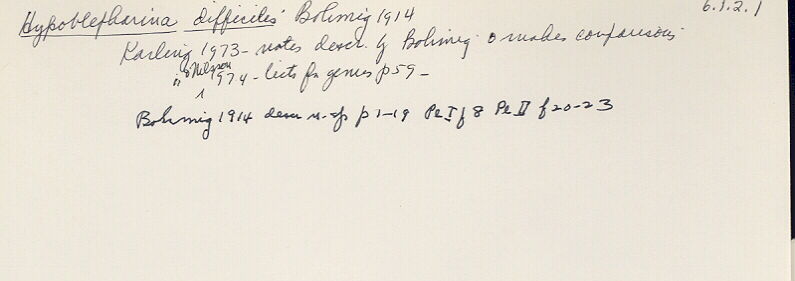 Hypoblepharina difficilis Bohmig 1914 6.1.2.1
Karling 1973 - notes descr. by Bohmig & makes comparisons
" & Nilsson 1974 - lists fn genus p 59 -
Bohmig 1914 descr n. sp p 1-19 Pl I f 8 Pl II f 20-23